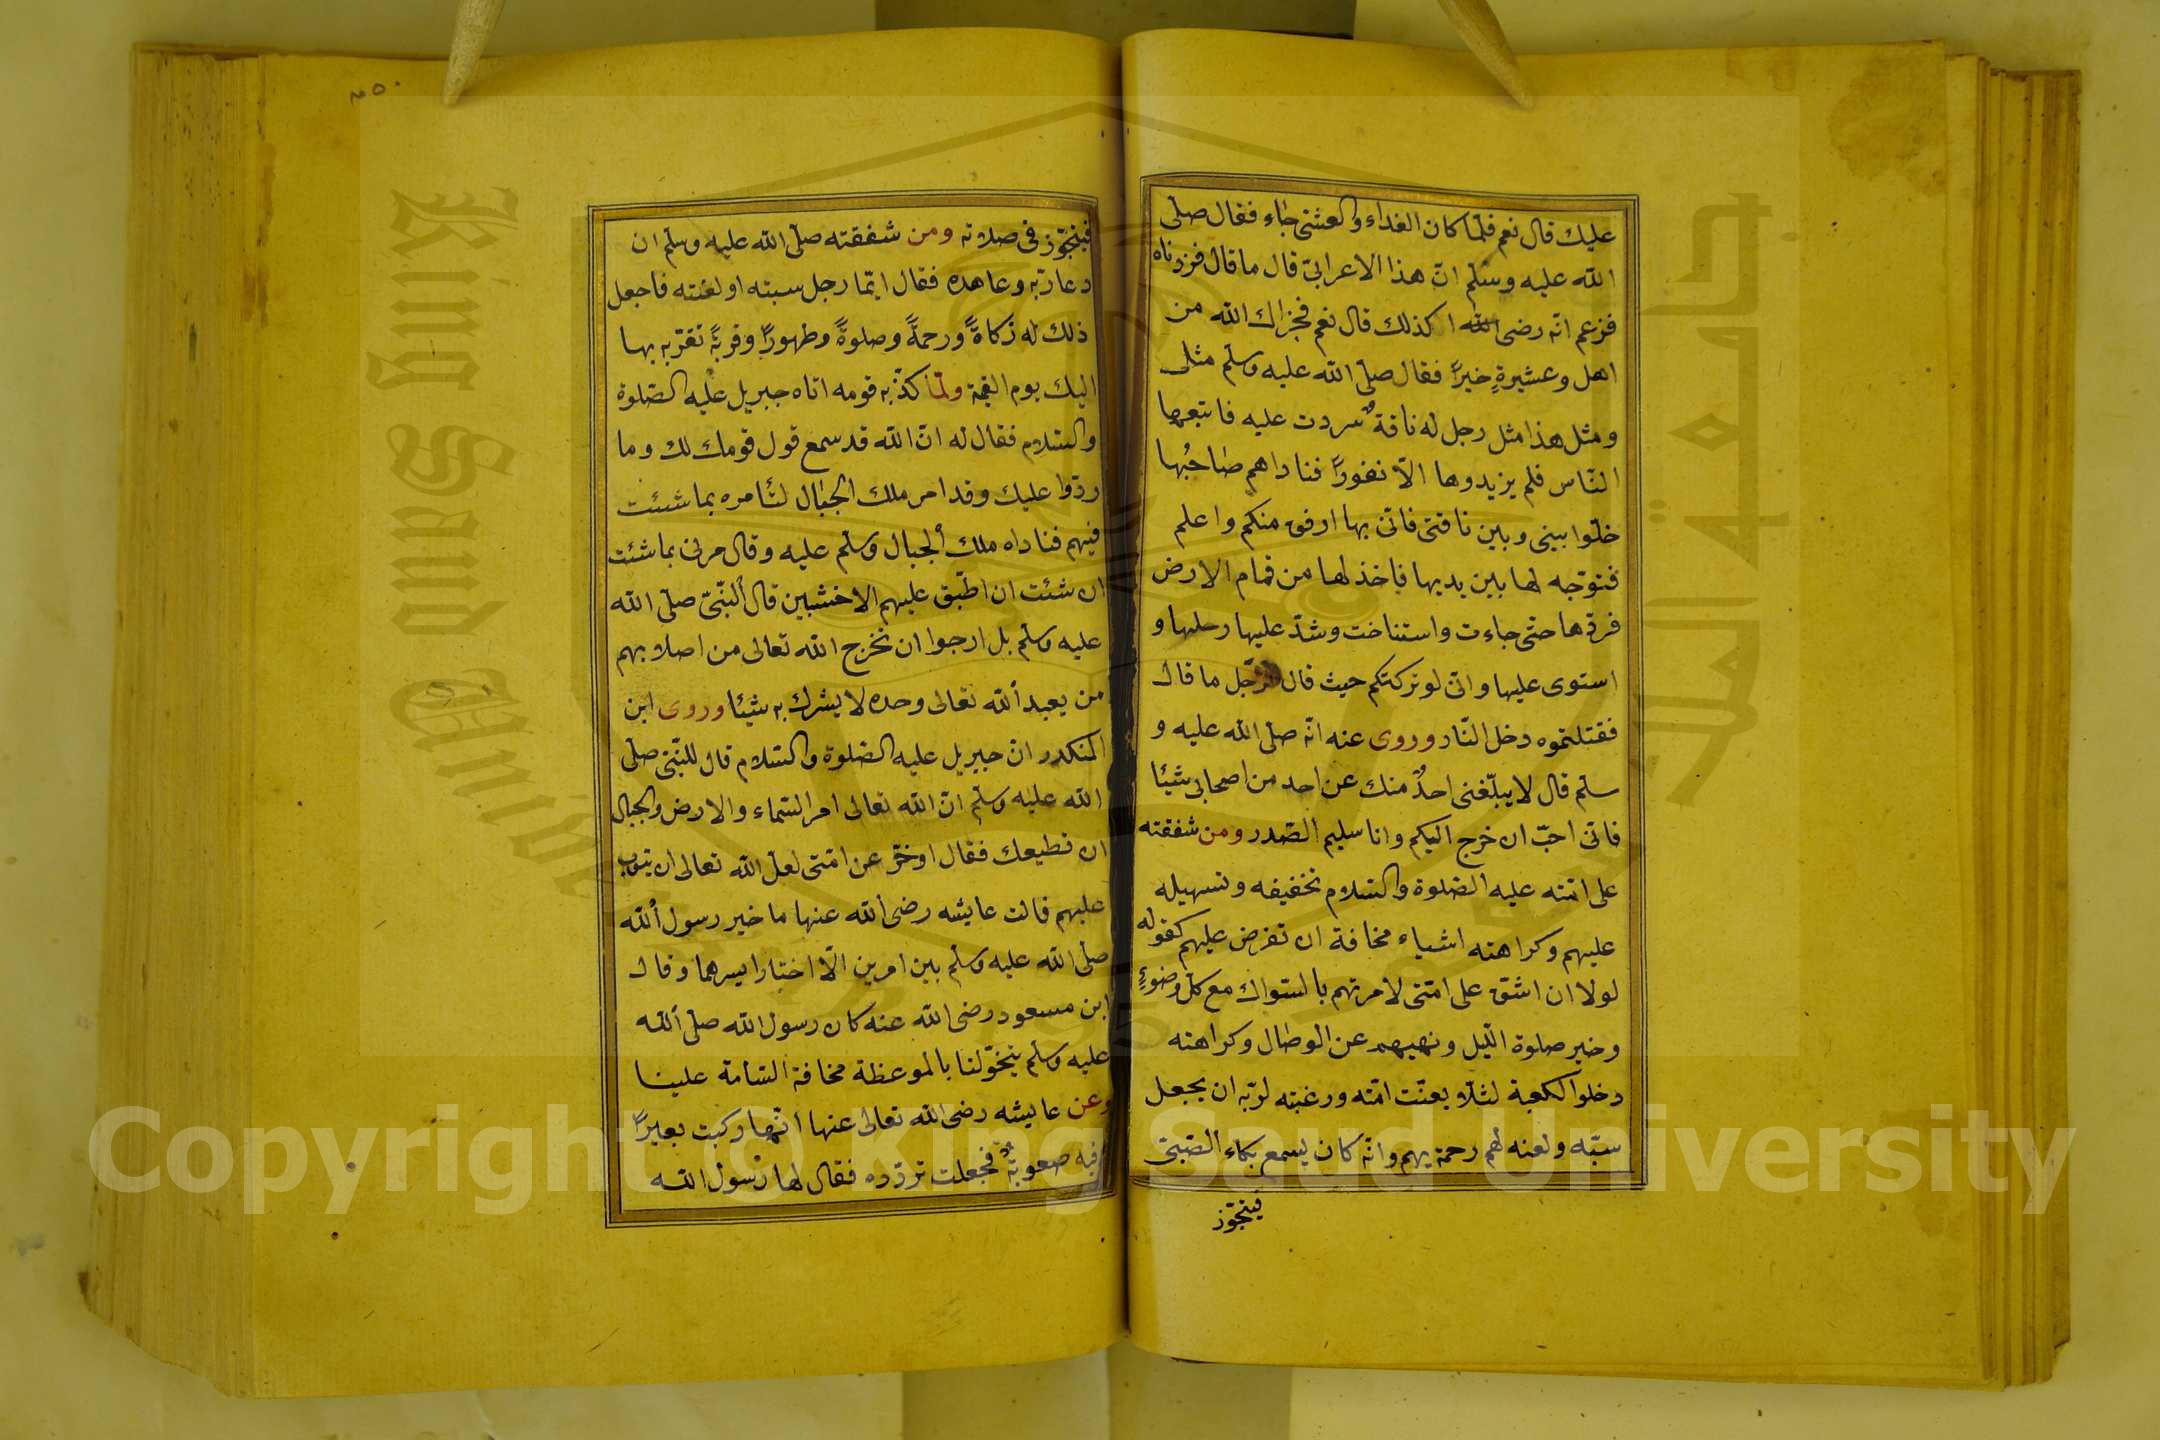 عليك قال نعم فلمّا كان الغداء والعشىّ جاء فقال صلّى
الله عليه وسلّم انّ هذا الاعرابىّ قال ما قال فزدناه
فزعم انّه رضى الله اكذلك قال نعم فجزاك الله من
اهل وعشيرةٍ خيراً فقال صلّى الله عليه وسلّم مثلى
ومثل هذا مثل رجل له ناقةٌ شردت عليه فاتبعها
النّاس فلم يزيدوها الاّ نفوراً فناداهم صاحبُها
خلّوا بينى وبين ناقتى فانّى بها ارفق منكم واعلم
فتوجّه لها بين يديها فاخذ لها من قمام الارض
فردّها حتّى جاءت واستناخت وشدّ عليها رحلها و
استوى عليها وانّى لو تركتكم حيث قال الرّجل ما قال
فقتلتموه دخل النّار وروى عنه انّه صلّى الله عليه و
سلّم قال لا يبلّغنى احدٌ منك عن احد من اصحابى شيئا
فانّى احبّ ان خرج اليكم وانا سليم الصّدر ومن شفقته
على امّته عليه الصّلوة والسّلام تخفيفه وتسهيله
عليهم وكراهته اشياء مخافة ان تفرض عليهم كقوله
لولا ان اشقّ على امّتى لامرتهم بالسّواك مع كلّ وضوءٍ
وخبر صلوة اللّيل ونهيهم عن الوصال وكراهته
دخلوا الكعبة لئلّا يعنّت امّته ورغبته لربّه ان يجعل
سبّه ولعنه لهم رحمة بهم وانّه كان يسمع بكاء الصّبىّ
فيتجوّز
٣٥٠
فيتجوّز فى صلاته ومن شفقته صلّى الله عليه وسلّم ان
دعا ربّه وعاهده فقال ايّما رجل سببته او لعنته فاجعل
ذلك له زكاةً ورحمةً وصلوةً وطهوراً وقربةً تقرّبه بها
اليك يوم القيمة ولمّا كذّبه قومه اتاه جبريل عليه الصّلوة
والسّلام فقال له انّ الله قد سمع قول قومك لك وما
ردّوا عليك وقد امر ملك الجبال لتأمره بما شئت
فيهم فناداه ملك الجبال وسلّم عليه وقال مرنى بما شئت
ان شئت ان اطّبق عليهم الاخشبين قال النّبىّ صلّى الله
عليه وسلّم بل ارجوا ان نخرج الله تعالى من اصلابهم
من يعبد الله تعالى وحده لا يشرك به شيئا وروى ابن
المنكدر انّ جبريل عليه الصّلوة والسّلام قال للنّبىّ صلّى
الله عليه وسلّم انّ الله تعالى امر السّماء والارض والجبال
ان تطيعك فقال اوخّر عن امّتى لعلّ الله تعالى ان يتوب
عليهم قالت عايشه رضى الله عنها ما خير رسول الله
صلّى الله عليه وسلّم بين امرين الّا اختار ايسرهما وقال
ابن مسعود رضى الله عنه كان رسول الله صلّى الله
عليه وسلّم يتخوّلنا بالموعظة مخافة السّامة علينا
وعن عايشه رضى الله تعالى عنها انّها ركبت بعيراً
وفيه صعوبةٌ فجعلت تردّده فقال لها رسول الله
Copyright © King Saud University
King Saud University